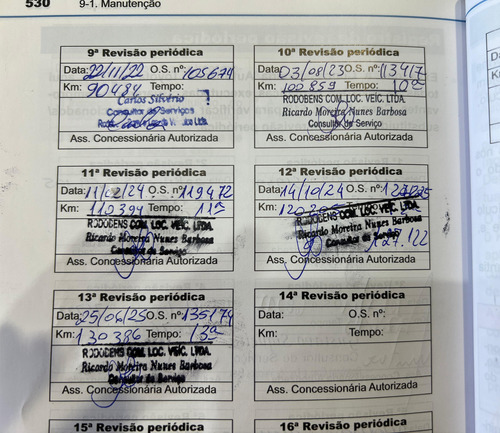 530 9-1. Manutenção
9ª Revisão periódica
Data: 22/11/22 O.S. nº: 105674
Km: 90484 Tempo:
Carlos Silvério
Consultor de Serviços
Ass. Concessionária Autorizada
10ª Revisão periódica
Data: 03/08/23 O.S. nº: 113417
Km: 100859 Tempo: 10ª
RODOBENS COM. LOC. VEÍC. LTDA.
Ricardo Moreira Nunes Barbosa
Consultor de Serviço
Ass. Concessionária Autorizada
11ª Revisão periódica
Data: 11/02/24 O.S. nº: 119472
Km: 110394 Tempo: 11ª
RODOBENS COM. LOC. VEÍC. LTDA.
Ricardo Moreira Nunes Barbosa
Consultor de Serviço
Ass. Concessionária Autorizada
12ª Revisão periódica
Data: 14/10/24 O.S. nº:
Km:
RODOBENS COM. LOC. VEÍC. LTDA.
Ricardo Moreira Nunes Barbosa
Consultor de Serviço 127.122
Ass. Concessionária Autorizada
13ª Revisão periódica
Data: 25/06/25 O.S. nº: 135174
Km: 130386 Tempo: 13ª
RODOBENS COM. LOC. VEÍC. LTDA.
Ricardo Moreira Nunes Barbosa
Consultor de Serviço
Ass. Concessionária Autorizada
14ª Revisão periódica
Data: O.S. nº:
Km: Tempo:
Ass. Concessionária Autorizada
15ª Revisão periódica
16ª Revisão periódica